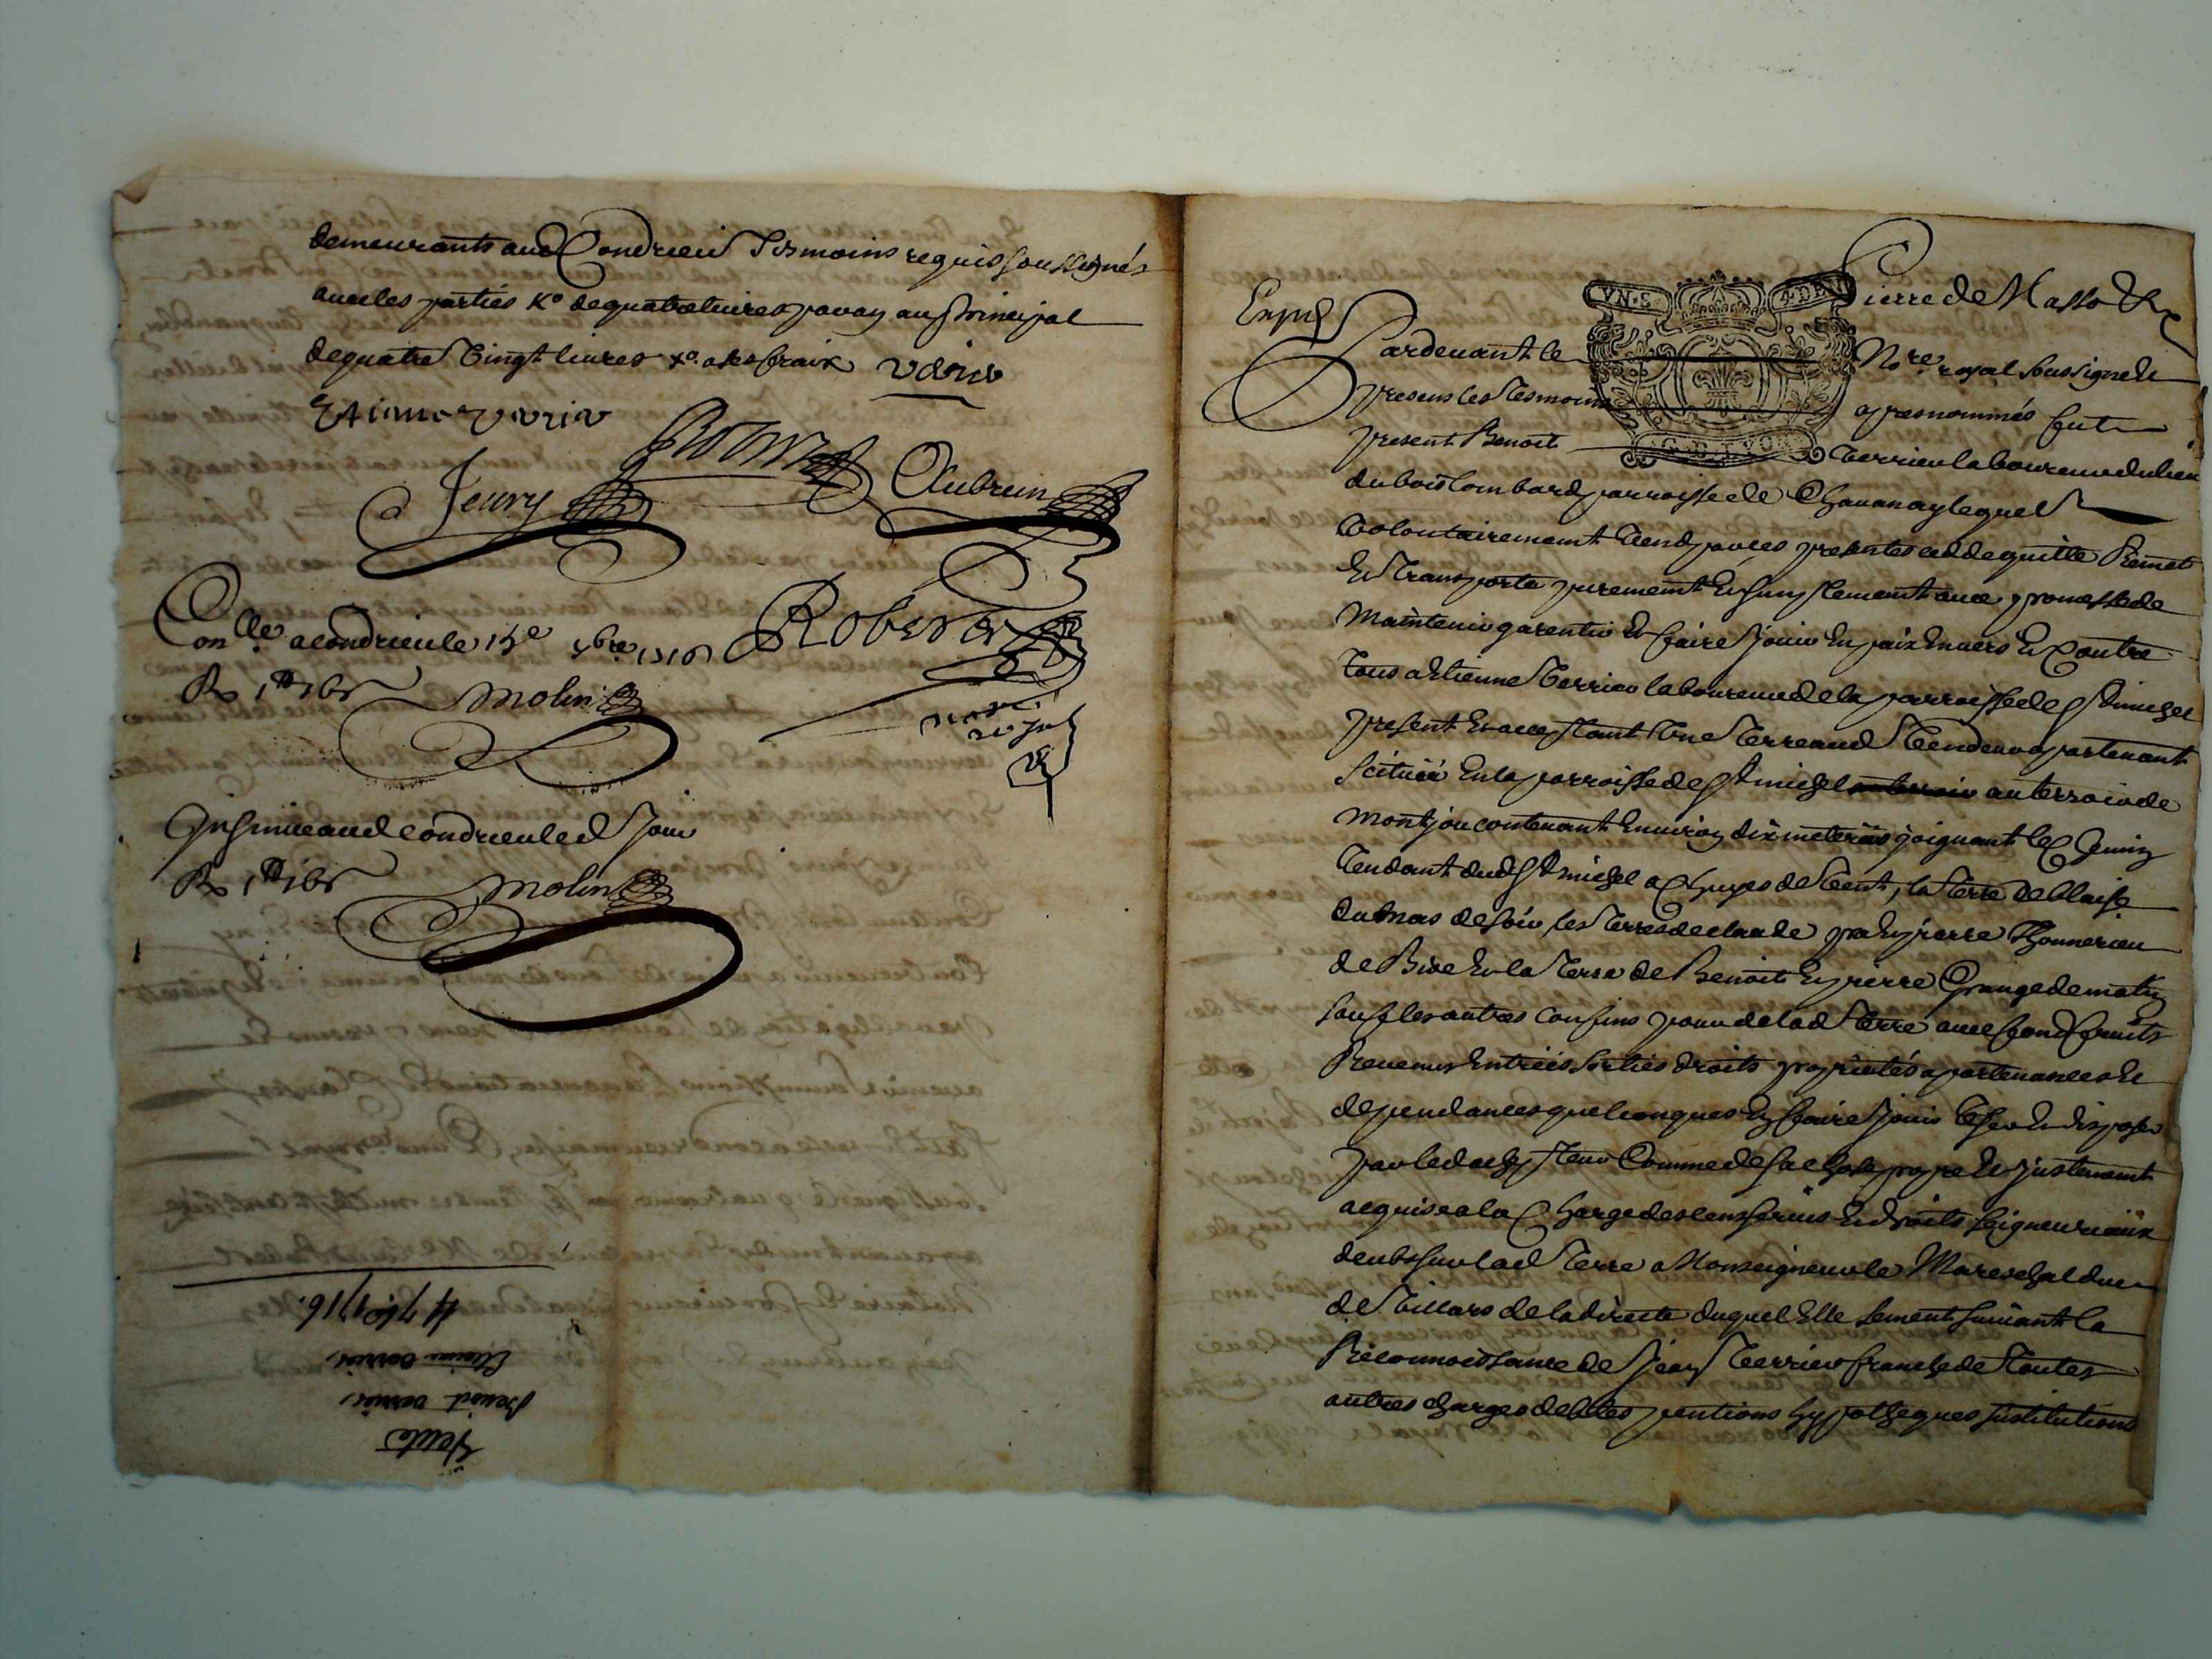 demeurants aud Condrieu Tesmoins requis soussignés
avec les parties K.º de quatre livres pavay au principal
de quatre Vingt livres xº. a ses fraix verié
Etiene verier
Jeury Aubrein
Con.lle a Condrieu le 15e 7bre 1716 Robert
R 1tt 16s molin
notre royal
Insinué aud Condrieu led Jour
R 1tt 16s molin
4 7bre 1716.
Etienne verrier,
Benoit verrier,
Vente
Pierre de Masso &c
Expé
Pardevant le No.re royal soussigné Et
presens les Tesmoins apres nommés fut
present Benoit Verrieu laboureur du lieu
du bois lombard parroisse de Chavanay lequel
Volontairement Vend par ces presentes ced de quitte Remet
Et Transporte purement Et simplement avec promesse de
Maintenir garentir Et faire Jouir En paix Envers Et Contre
Tous a Etienne Verrieu laboureur de la parroisse de St michel
present Et acceptant Une Terre aud Vendeur apartenant
Scituéé En la parroisse de St michel au terroir au terroir de
Montjou contenant Environ dix meterées joignant le Chemin
Tendant dud St michel a Chuyes de Vent, la Terre de Blaise
Dumas de soir, les Terres de claude Et pierre Thonnerieu
de Bize Et la Terre de Benoit Et pierre Grange de matin
sauf les autres Confins pour de lad Terre avec fond fruits
Revenus Entréés Sorties droits proprietés apartenances Et
dependances quelconques En faire Jouir User Et disposer
par led achepteur Comme de sa Chose propre Et justement
acquise a la Charge des cens servis Et Droits seigneuriaux
deubs sur lad Terre a Monseigneur le Mareschal duc
de Villars de la directe duquel Elle sement suivant la
Reconnoissance de Jean Verrieu franche de Toutes
autres charges debtes pentions hypotheques substitutions